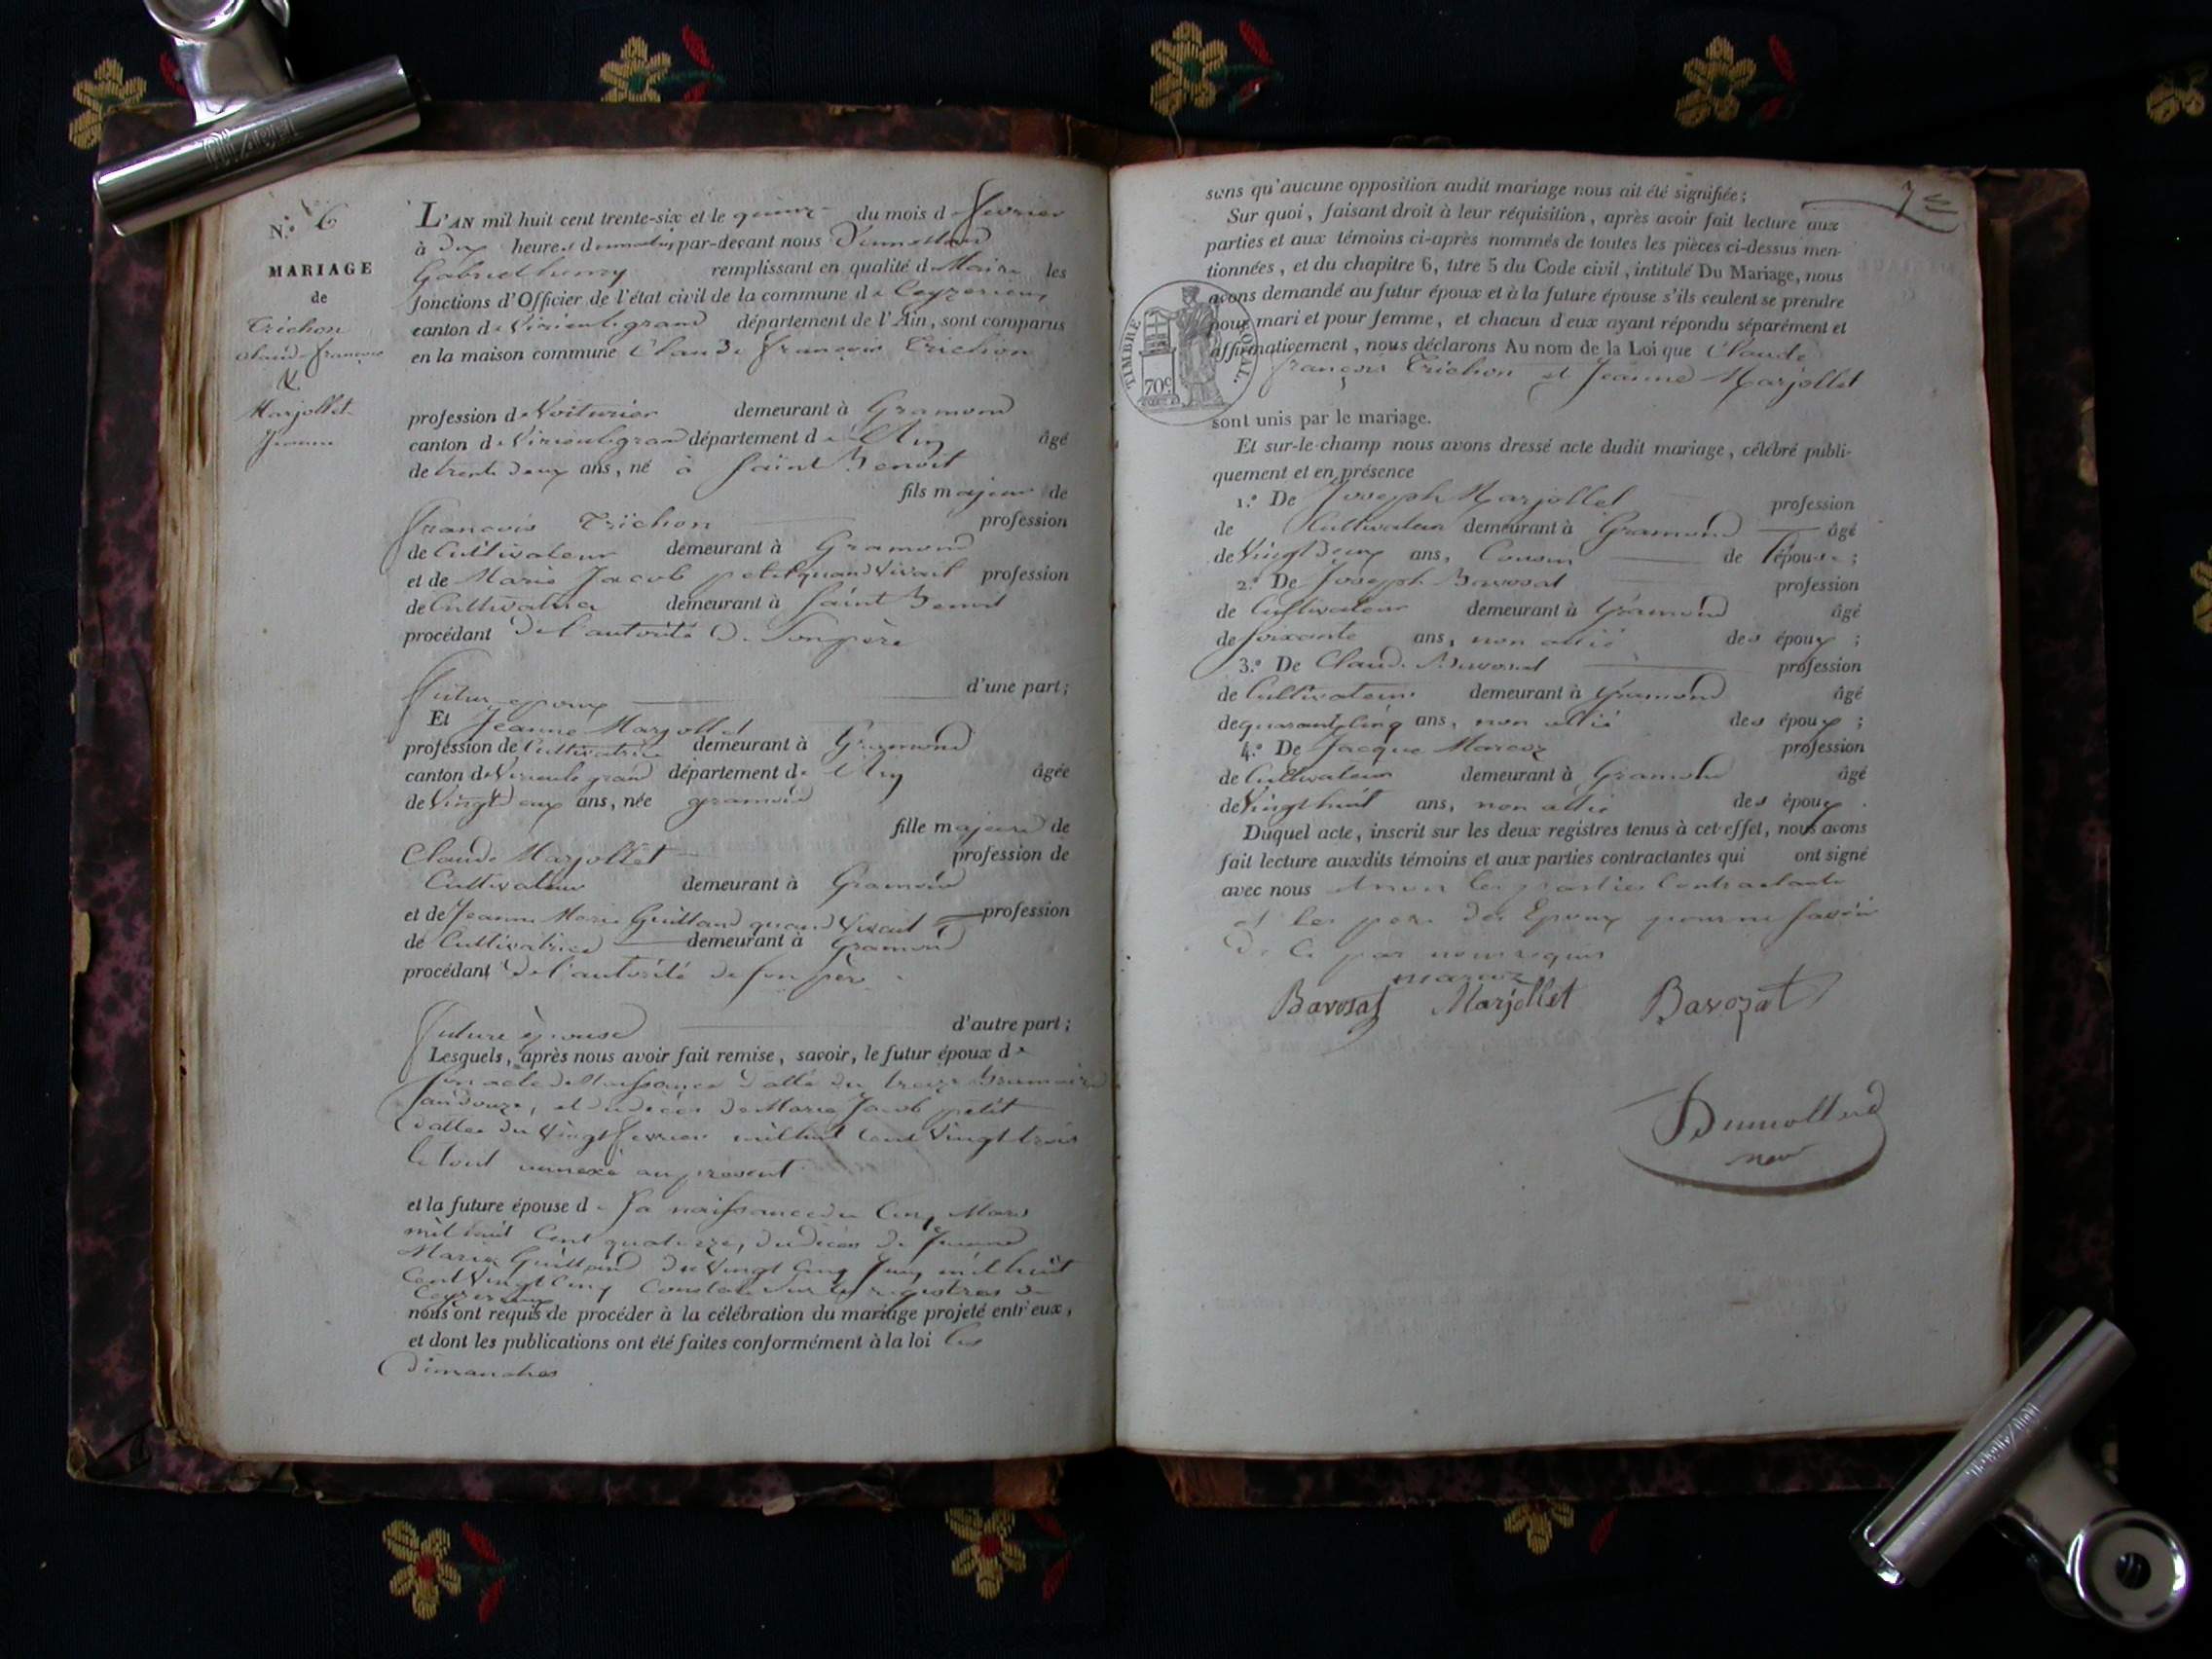 N.° 6
MARIAGE
de
Trichon
Claude françois
&
Marjollet
Jeanne
L'AN mil huit cent trente-six et le quinze du mois d fevrier
à dix heures du matin par-devant nous Dumollard
Gabriel henry remplissant en qualité de Maire les
fonctions d'Officier de l'état civil de la commune de Ceyzerieux
canton de Virieulegrand département de l'Ain, sont comparus
en la maison commune Claude françois Trichon
profession de Voiturier demeurant à Gramond
canton de Virieulegrand département de l'Ain âgé
de trente deux ans, né à Saint Benoit
fils majeur de
françois Trichon profession
de Cultivateur demeurant à Gramond
et de Marie Jacob petit quand Vivait profession
de Cultivatrice demeurant à Saint Benoit
procédant de l'autorité de Son père
futur epoux d'une part;
Et Jeanne Marjollet
profession de Cultivatrice demeurant à Gramond
canton de Virieule grand département de l'Ain âgée
de Vingt deux ans, née gramond
fille majeure de
Claude Marjollet profession de
Cultivateur demeurant à Gramond
et de Jeanne Marie Guilland quand Vivait profession
de Cultivatrice demeurant à Gramond
procédant de l'autorité de son père
future épouse d'autre part;
Lesquels, après nous avoir fait remise, savoir, le futur époux de
son acte de Naissance datté du treize Brumaire
an douze, et du décès de Marie Jacob petit
dattée du Vingt fevrier mil huit cent Vingt trois
le tout annexé au présent
et la future épouse de sa naissance du Cinq Mars
mil huit Cent quatorze, du décès de Jeanne
Marie Guilland du Vingt Cinq Juin mil huit
Cent Vingt Cinq Constaté sur les registres de
Ceyzerieux
nous ont requis de procéder à la célébration du mariage projeté entr'eux,
et dont les publications ont été faites conformément à la loi les
dimanches
sans qu'aucune opposition audit mariage nous ait été signifiée;
Sur quoi, faisant droit à leur réquisition, après avoir fait lecture aux
parties et aux témoins ci-après nommés de toutes les pièces ci-dessus men-
tionnées, et du chapitre 6, titre 5 du Code civil, intitulé Du Mariage, nous
avons demandé au futur époux et à la future épouse s'ils veulent se prendre
pour mari et pour femme, et chacun d'eux ayant répondu séparément et
affirmativement, nous déclarons Au nom de la Loi que Claude
françois Trichon et Jeanne Marjollet
TIMBRE ROYAL.
70c
sont unis par le mariage.
Et sur-le-champ nous avons dressé acte dudit mariage, célébré publi-
quement et en présence
1.° De Joseph Marjollet profession
de Cultivateur demeurant à Gramond âgé
de Vingt deux ans, Cousin de l'épouse;
2.° De Joseph Bavozat profession
de Cultivateur demeurant à Gramond âgé
de soixante ans, non allié des époux;
3.° De Claude Bavozat profession
de Cultivateur demeurant à Gramond âgé
de quarante cinq ans, non allié des époux;
4.° De Jacque Marcoz profession
de Cultivateur demeurant à Gramond âgé
de Vingt huit ans, non allié des époux.
Duquel acte, inscrit sur les deux registres tenus à cet effet, nous avons
fait lecture auxdits témoins et aux parties contractantes qui ont signé
avec nous et non les parties Contractante
et les pere des Epoux pour ne savoir
de Ce par nous requis
marcoz
Bavozat Marjollet Bavozat
Dumollard